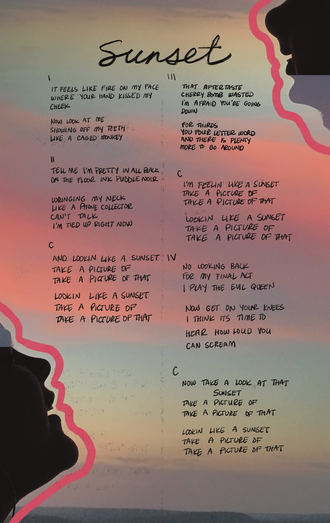 Sunset
I
IT FEELS LIKE FIRE ON MY FACE
WHERE YOUR HAND KISSED MY
CHEEK
NOW LOOK AT ME
SHOWING OFF MY TEETH
LIKE A CAGED MONKEY
II
TELL ME I'M PRETTY IN ALL BLACK
ON THE FLOOR INK PUDDLE NOIR
WRINGING MY NECK
LIKE A PHONE COLLECTOR
CAN'T TALK
I'M TIED UP RIGHT NOW
C
AND LOOKIN LIKE A SUNSET
TAKE A PICTURE OF
TAKE A PICTURE OF THAT
LOOKIN LIKE A SUNSET
TAKE A PICTURE OF
TAKE A PICTURE OF THAT
III
THAT AFTERTASTE
CHERRY BOMB WASTED
I'M AFRAID YOU'RE GOING
DOWN
FOR THIRDS
YOU LETTER WORD
AND THERE IS PLENTY
MORE TO GO AROUND
C
I'M FEELIN LIKE A SUNSET
TAKE A PICTURE OF
TAKE A PICTURE OF THAT
LOOKIN LIKE A SUNSET
TAKE A PICTURE OF
TAKE A PICTURE OF THAT
IV
NO LOOKING BACK
FOR MY FINAL ACT
I PLAY THE EVIL QUEEN
NOW GET ON YOUR KNEES
I THINK ITS TIME TO
HEAR HOW LOUD YOU
CAN SCREAM
C
NOW TAKE A LOOK AT THAT
SUNSET
TAKE A PICTURE OF
TAKE A PICTURE OF THAT
LOOKIN LIKE A SUNSET
TAKE A PICTURE OF
TAKE A PICTURE OF THAT